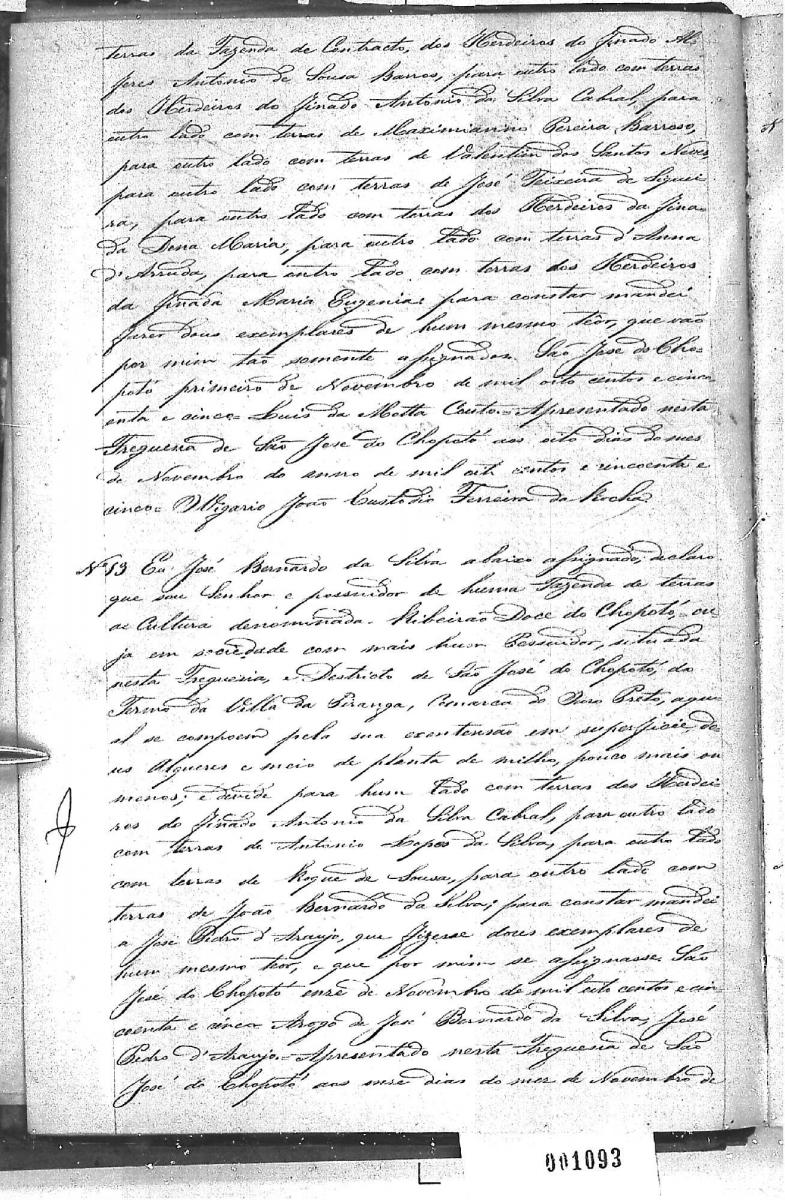 terras da Fazenda de Contracto, dos Herdeiros do Finado Al-
feres Antonio de Sousa Barros, para outro lado com terras
dos Herdeiros do Finado Antonio da Silva Cabral, para
outro lado com terras de Maximianno Pereira Barroso,
para outro lado com terras de Valentim dos Santos Neves,
para outro lado com terras de José Teixeira de Siquei-
ra, para outro lado com terras dos Herdeiros da Fina-
da Dona Maria, para outro lado com terras d'Anna
d'Arruda, para outro lado com terras dos Herdeiros
da Finada Maria Eugenia; para constar mandei
fazer dous exemplares de hum mesmo teôr, que vão
por mim tão somente assignados. São José do Cho-
potó primeiro de Novembro de mil oito centos e cinco-
enta e cinco = Luis da Motta Couto = Apresentado nesta
Freguesia de São José do Chopotó aos oito dias do mes
de Novembro do anno de mil oito centos e cincoenta e
cinco = O Vigario João Custodio Ferreira da Rocha
Nº 13 Eu José Bernardo da Silva abaixo assignado, declaro
que sou Senhor e possuidor de huma Fazenda de terras
de Cultura denominada = Ribeirão Doce do Chopotó, cu-
ja em sociedade com mais hum Possuidor, situada
nesta Freguesia, e Destricto de São José do Chopotó, do
Termo da Villa da Piranga, Comarca do Ouro Preto, a qu-
al se compoem pela sua exentensão em superficie, de
us Alqueres e meio de planta de milho, pouco mais ou
menos; e divide para hum lado com terras dos Herdei-
ros do Finado Antonio da Silva Cabral, para outro lado
com terras de Antonio Lopes da Silva, para outro lado
com terras de Roque de Sousa, para outro lado com
terras de João Bernardo da Silva; para constar mandei
a José Pedro d'Araujo, que fizesse dous exemplares de
hum mesmo teor, e que por mim se assignasse. São
José do Chopotó onze de Novembro de mil oito centos e cin-
coenta e cinco. Arogo de José Bernardo da Silva, José
Pedro d'Araujo = Apresentado nesta Freguesia de São
José do Chopotó aos onze dias do mez de Novembro de
001093